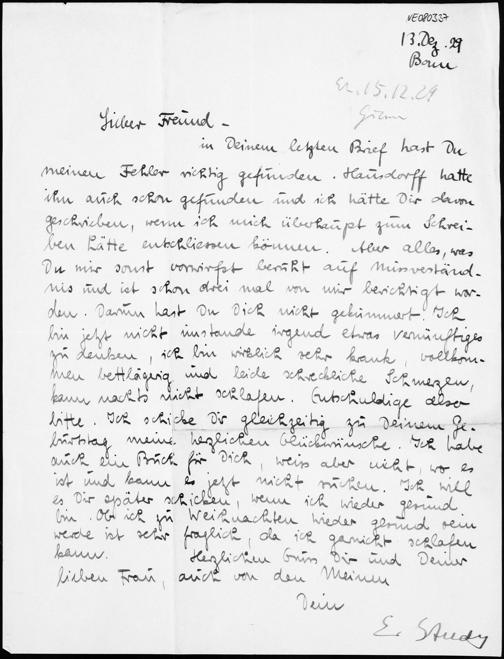 VE080337
13. Dez. 29
Bonn
15.12.29
Lieber Freund -
in Deinem letzten Brief hast Du
meinen Fehler richtig gefunden. Hausdorff hatte
ihn auch schon gefunden und ich hätte Dir davon
geschrieben, wenn ich mich überhaupt zum Schrei-
ben hätte entschliessen können. Aber alles, was
Du mir sonst vorwirfst beruht auf Missverständ-
nis und ist schon drei mal von mir berichtigt wor-
den. Darum hast Du Dich nicht gekümmert. Ich
bin jetzt nicht imstande irgend etwas vernünftiges
zu denken, ich bin wirklich sehr krank, vollkom-
men bettlägerig und leide schreckliche Schmerzen,
kann nachts nicht schlafen. Entschuldige also
bitte. Ich schicke Dir gleichzeitig zu Deinem Ge-
burtstag meine herzlichen Glückwünsche. Ich habe
auch ein Buch für Dich, weiss aber nicht, wo es
ist und kann es jetzt nicht suchen. Ich will
es Dir später schicken, wenn ich wieder gesund
bin. Ob ich zu Weihnachten wieder gesund sein
werde ist sehr fraglich, da ich garnicht schlafen
kann. Herzlichen Gruss Dir und Deiner
lieben Frau, auch von den Meinen
Dein
E. Study